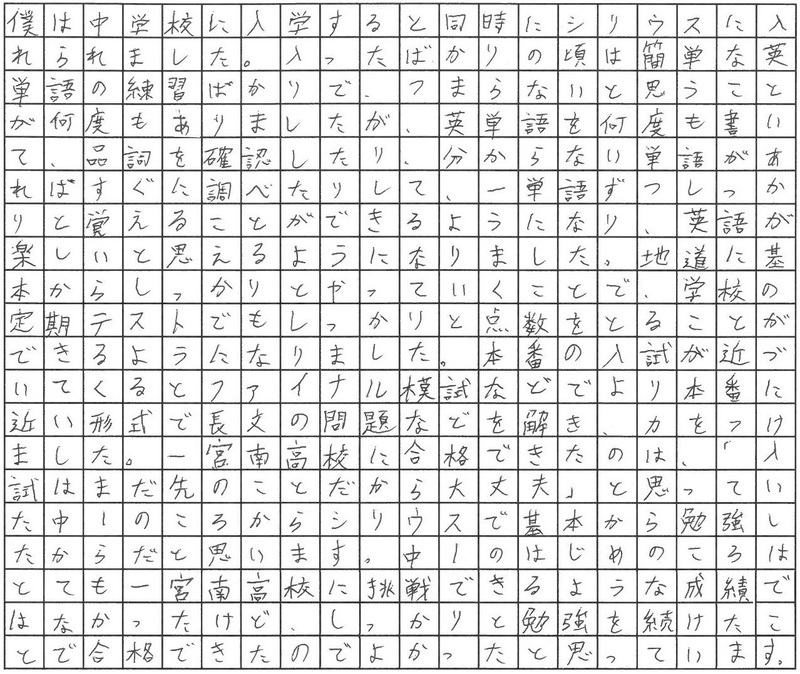 僕は中学校に入学すると同時にシリウスに入
れられました。入ったばかりの頃は簡単な英
単語の練習ばかりで、つまらないと思うこと
が何度もありましたが、英単語を何度も書い
て、品詞を確認したり、分からない単語があ
ればすぐに調べたりして、一単語ずつしっか
りと覚えることができるようになり、英語が
楽しいと思えるようになりました。地道に基
本からしっかりとやっていくことで、学校の
定期テストでもしっかりと点数をとることが
できるようになりました。本番の入試が近づ
いてくるとファイナル模試などでより本番に
近い形式で長文の問題などを解き、力をつけ
ました。一宮南高校に合格できたのは、「入
試はまだ先のことだから大丈夫」と思ってい
た中1のころからシリウスで基本から勉強し
たからだと思います。中1のはじめのころは
とても一宮南高校に挑戦できるような成績で
はなかったけど、しっかりと勉強を続けたこ
とで合格できたのでよかったと思っています。